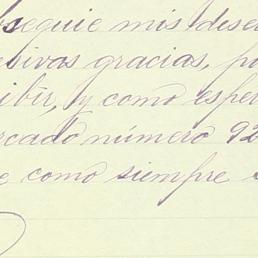 bsequie mis dese
sivas gracias, po
ibir, y como espe
rcado número 92
e como siempre